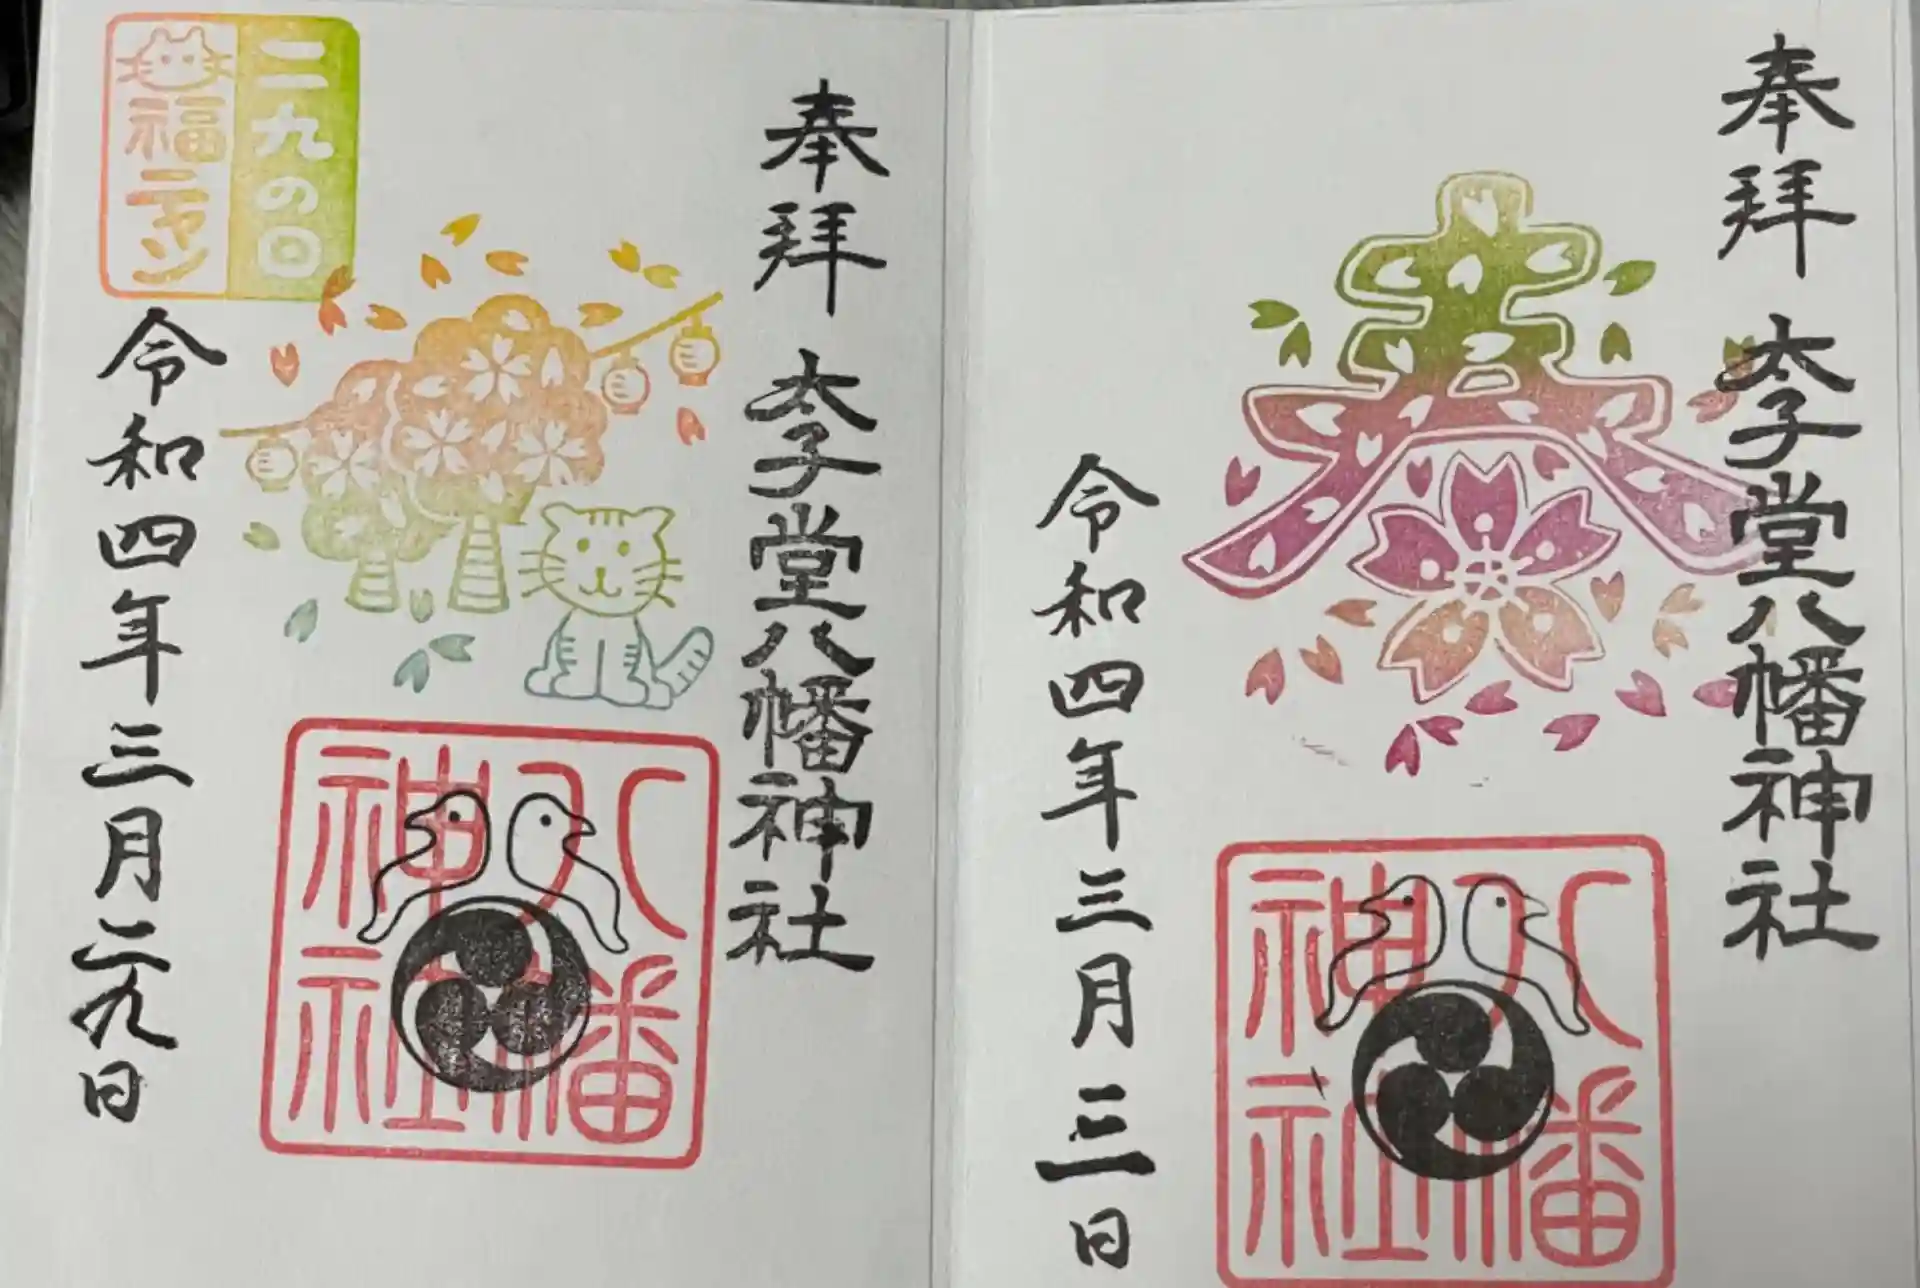 奉拝 太子堂八幡神社
春
八幡
神社
令和四年三月三日
奉拝 太子堂八幡神社
八幡
神社
二九の日
福ニャン
令和四年三月二九日